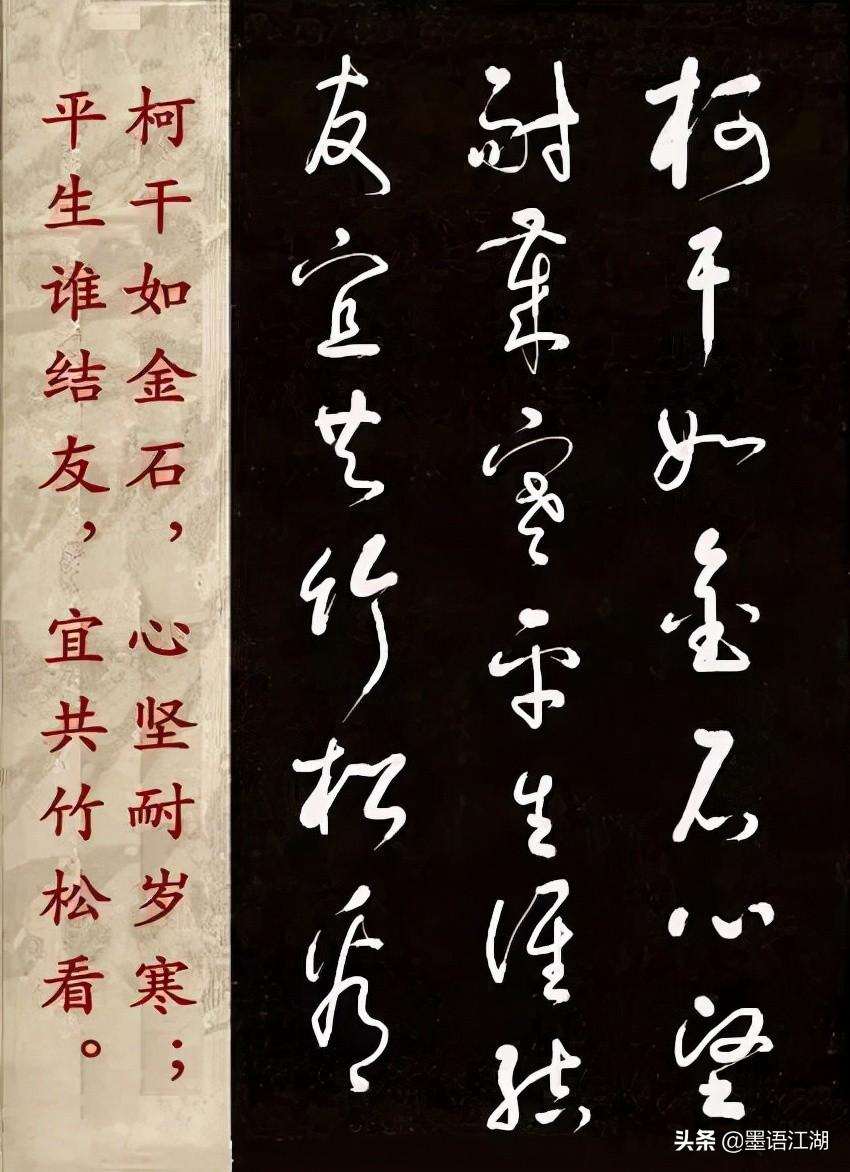 柯干如金石心坚
耐岁寒平生谁结
友宜共竹松看
柯干如金石，心坚耐岁寒；
平生谁结友，宜共竹松看。
头条 @墨语江湖